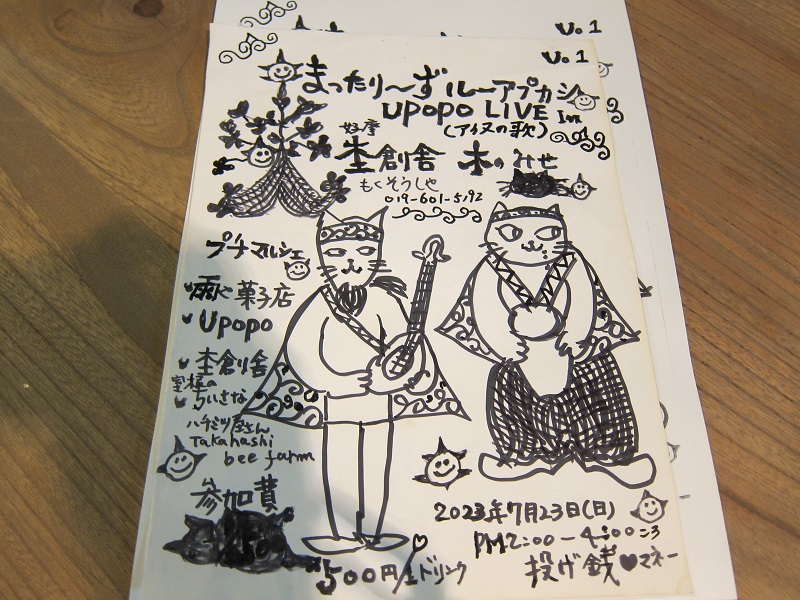 Vo.1
Vo.1
まったり〜ず ルーアプカシ
UPOPO LIVE In
(アイヌの歌)
好摩
杢創舎 木のみせ
もくそうしゃ
019-601-5192
プチマルシェ
菓子店
Upopo
杢創舎
ちいさな
ハチミツ屋さん
Takahashi
bee farm
参加費
500円/1ドリンク
2023年7月23日(日)
PM2:00-4:00ころ
投げ銭♥マネー